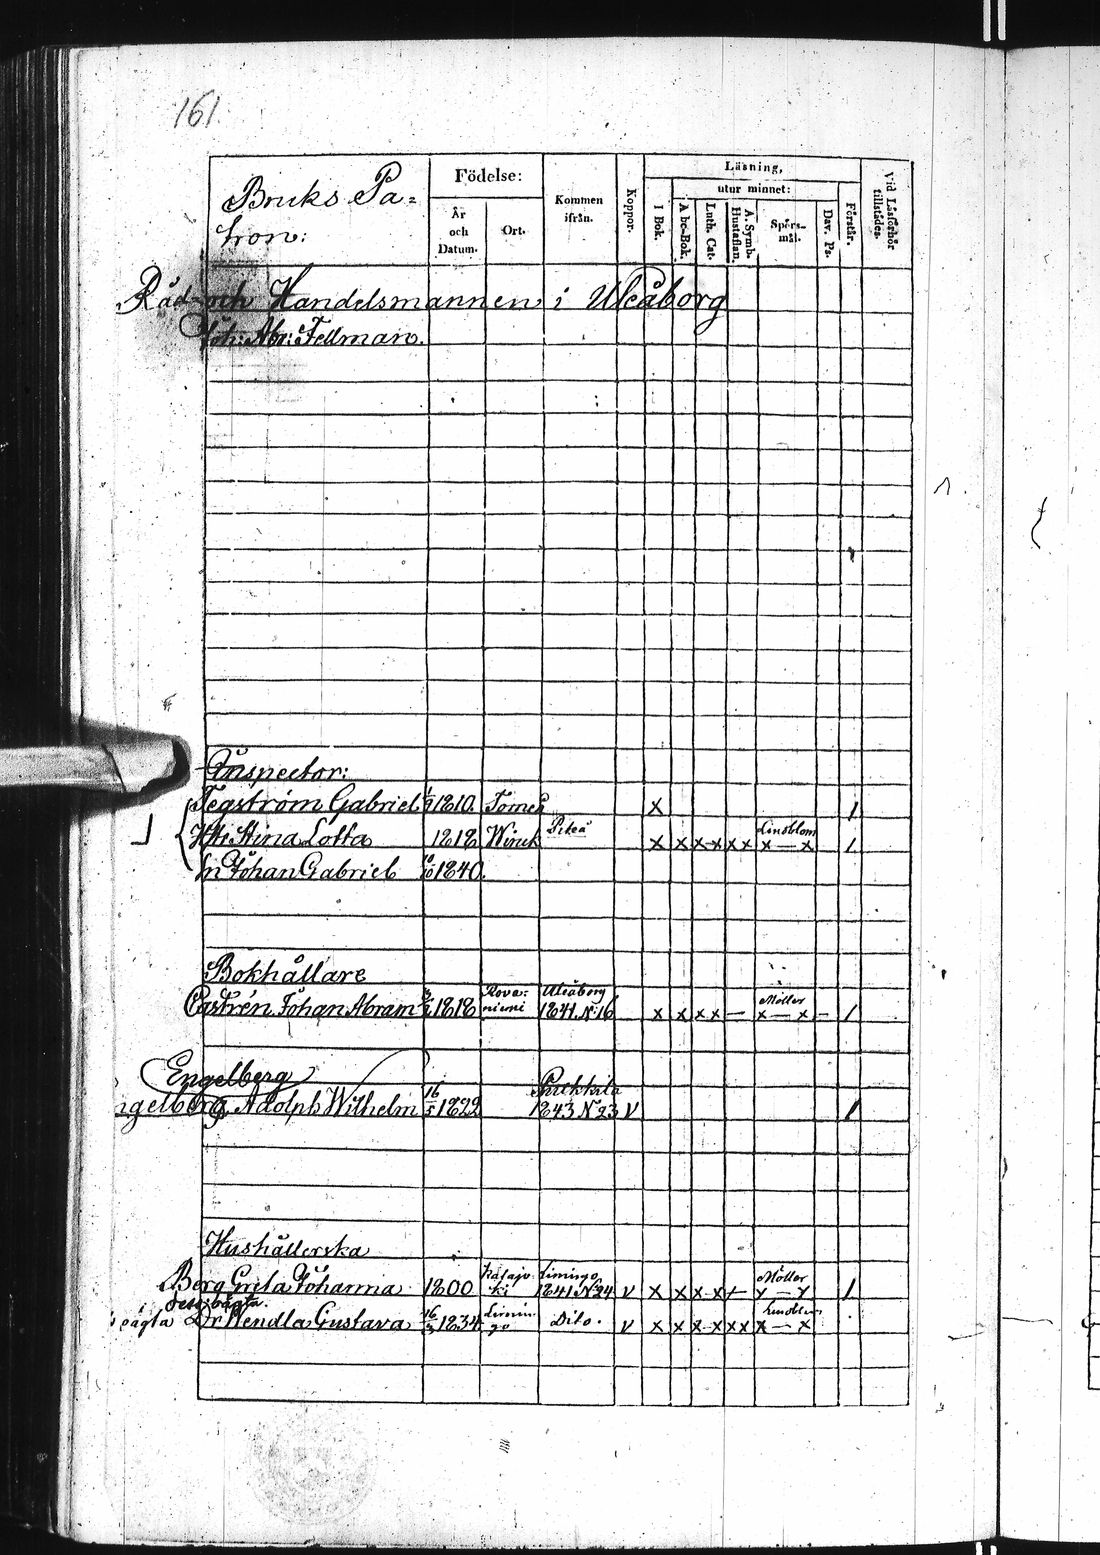 161
Bruks Pa=
tron:
Födelse:
År
och
Datum.
Ort.
Kommen
ifrån.
Koppor.
Läsning,
utur minnet:
I Bok.
A bc-Bok.
Luth. Cat.
A. Symb.
Hustaflan.
Spörs-
mål.
Dav. Ps.
Förstår.
Vid Läsförhör
tillstädes.
Råd- och Handelsmannen i Uleåborg
Joh: Abr: Fellman.
Inspector:
Tegström Gabriel 1810. Torneå x 1
Stina Lotta 1818 Piteå x x x x x x Lindblom x — x 1
Sn Johan Gabriel 1840.
Bokhållare
Castrén Johan Abram 1818 Rova=niemi Uleåborg 1841 N 16 x x x x — Möller x — x — 1
Engelberg
ngelberg Adolph Wilhelm 16/5 1822 Pukkila 1843 N 23 V 1
Hushållerska
Berg Greta Johanna 1800 Limingo 1841 N 24 V x x x x + Möller x — x 1
oägta Dr Wendla Gustava 1834 Limin=go Dito. V x x x x x x x — x